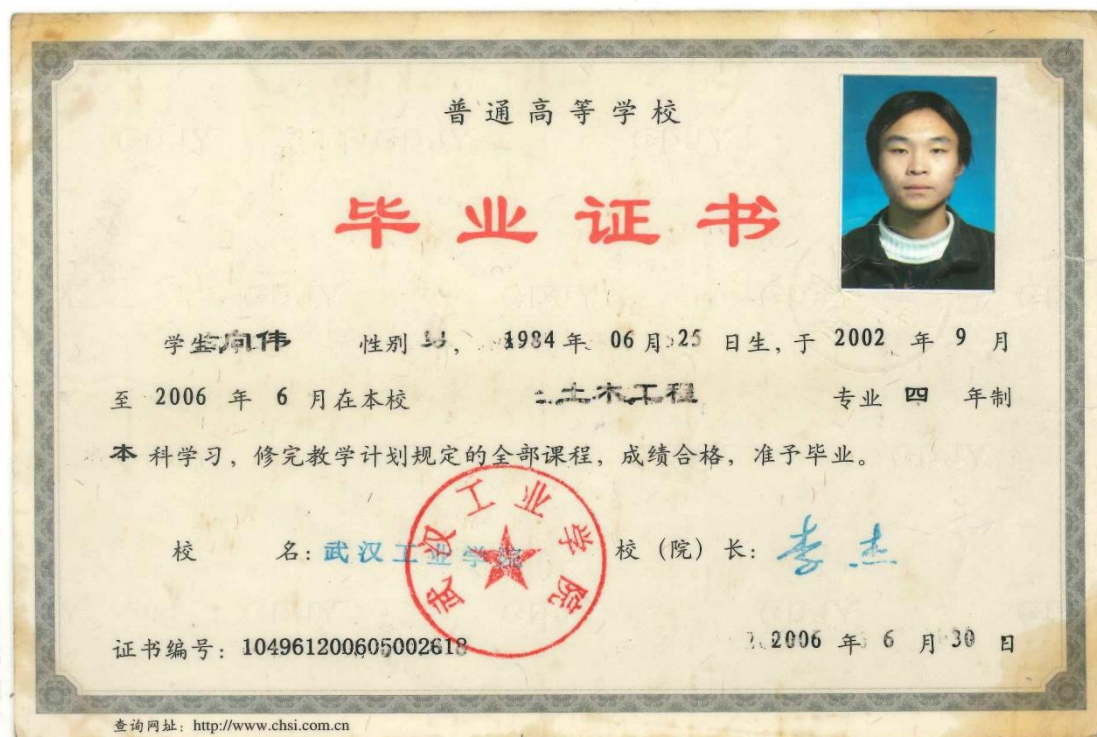 普通高等学校
毕业证书
学生 向伟 性别 男, 1984 年 06 月 25 日生, 于 2002 年 9 月
至 2006 年 6 月在本校 土木工程 专业 四 年制
本 科学习, 修完教学计划规定的全部课程, 成绩合格, 准予毕业。
校 名: 武汉工业学院 校 (院) 长: 李杰
武汉工业学院
证书编号: 104961200605002618 2006 年 6 月 30 日
查询网址: http://www.chsi.com.cn